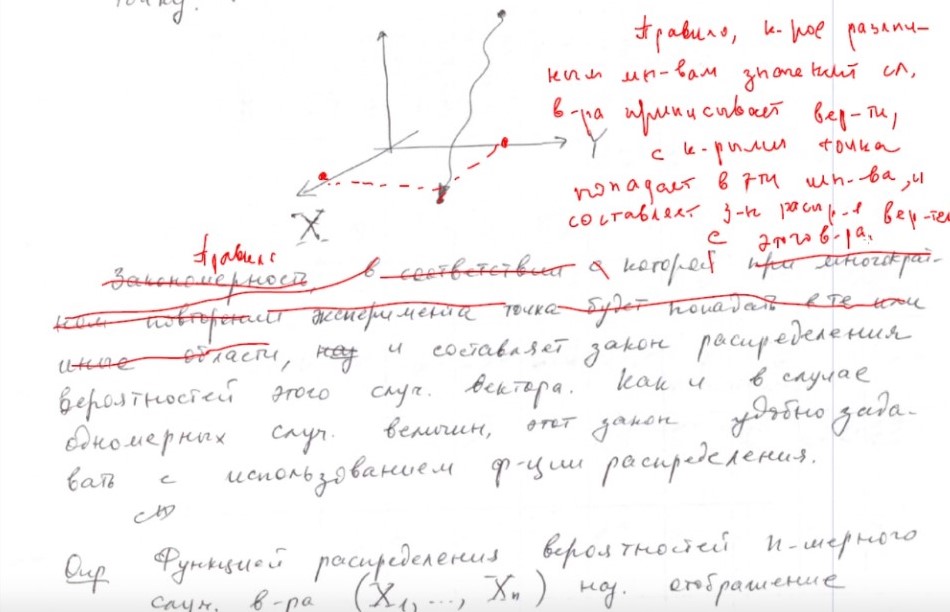 Правило, к-рое различ-
ным мн-вам значений сл.
в-ра приписывает вер-ти,
с к-рыми точка
попадает в эти мн-ва, и
составляет з-н распр-я вер-тей
с этого в-ра.
Y
X
Правило
Закономерность, в соответствии с которой при многократ-
ном повторении эксперимента точка будет попадать в те или
иные области, наз и составляет закон распределения
вероятностей этого случ. вектора. Как и в случае
одномерных случ. величин, этот закон удобно зада-
вать с использованием ф-ции распределения.
Опр Функцией распределения вероятностей n-мерного
случ. в-ра (X1, ..., Xn) наз. отображение